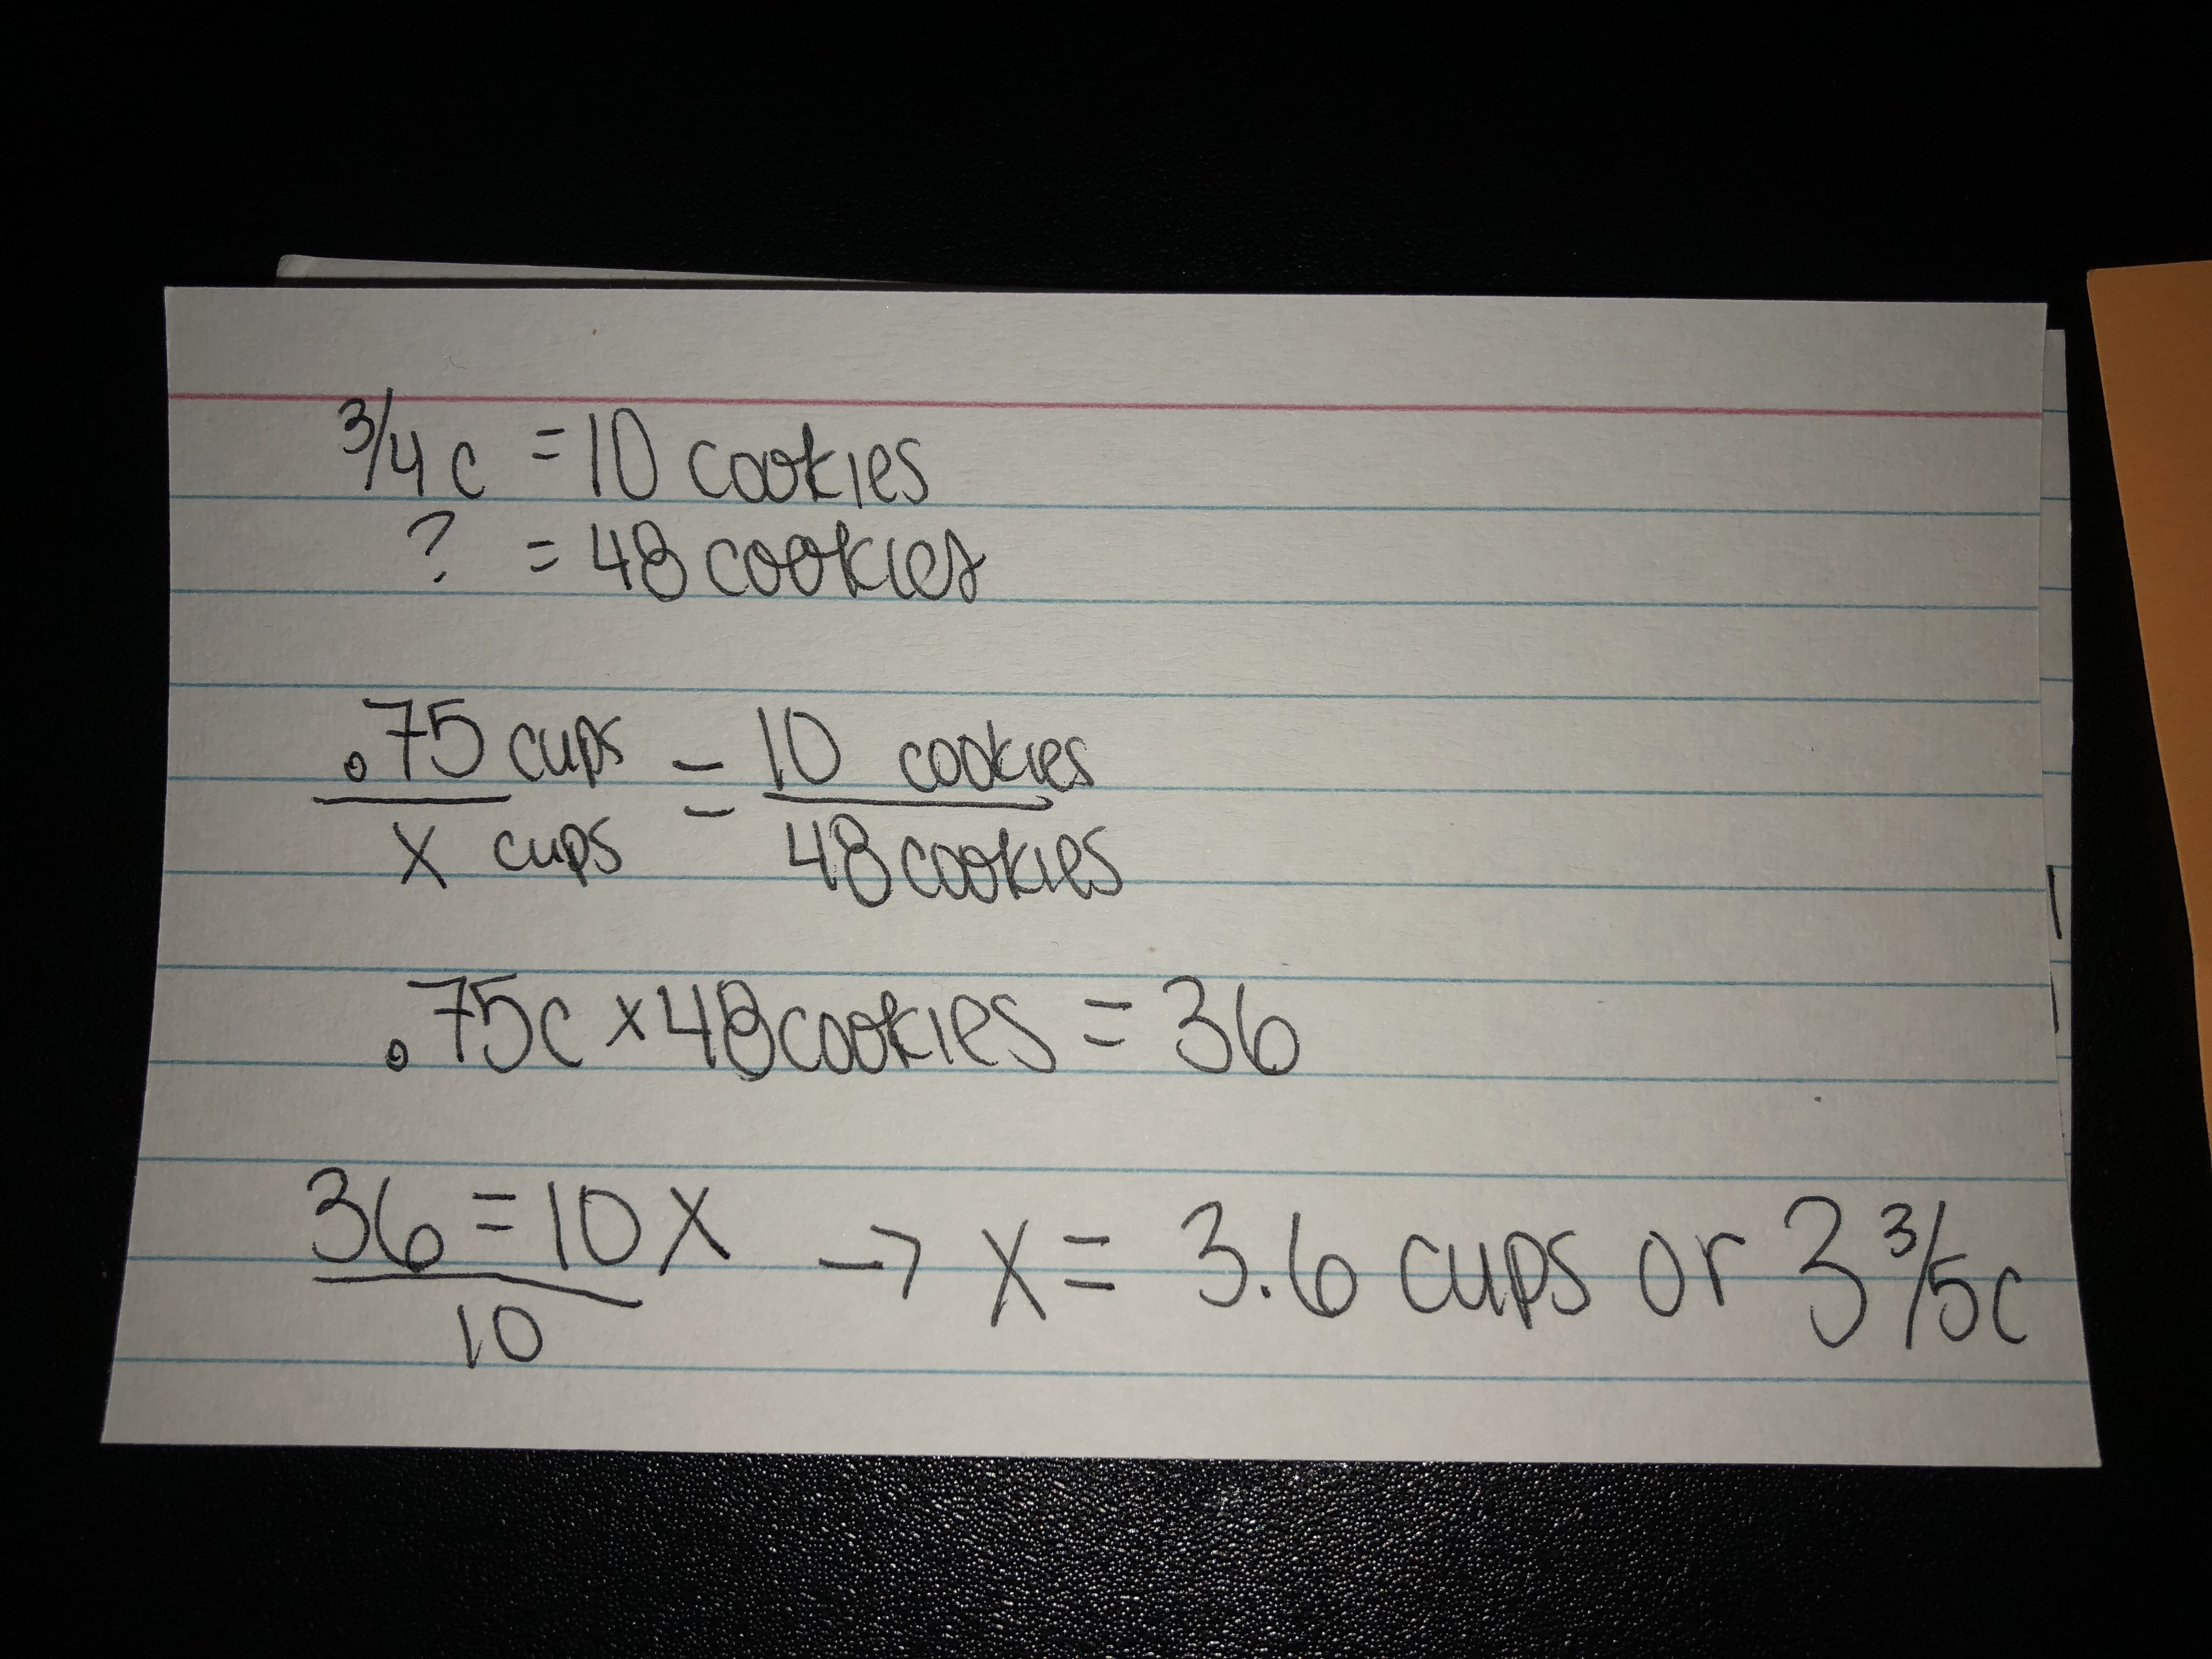 3/4 c = 10 cookies
? = 48 cookies
.75 cups = 10 cookies
x cups 48 cookies
.75c x 48 cookies = 36
36 = 10x → x = 3.6 cups or 3 3/5 c
10